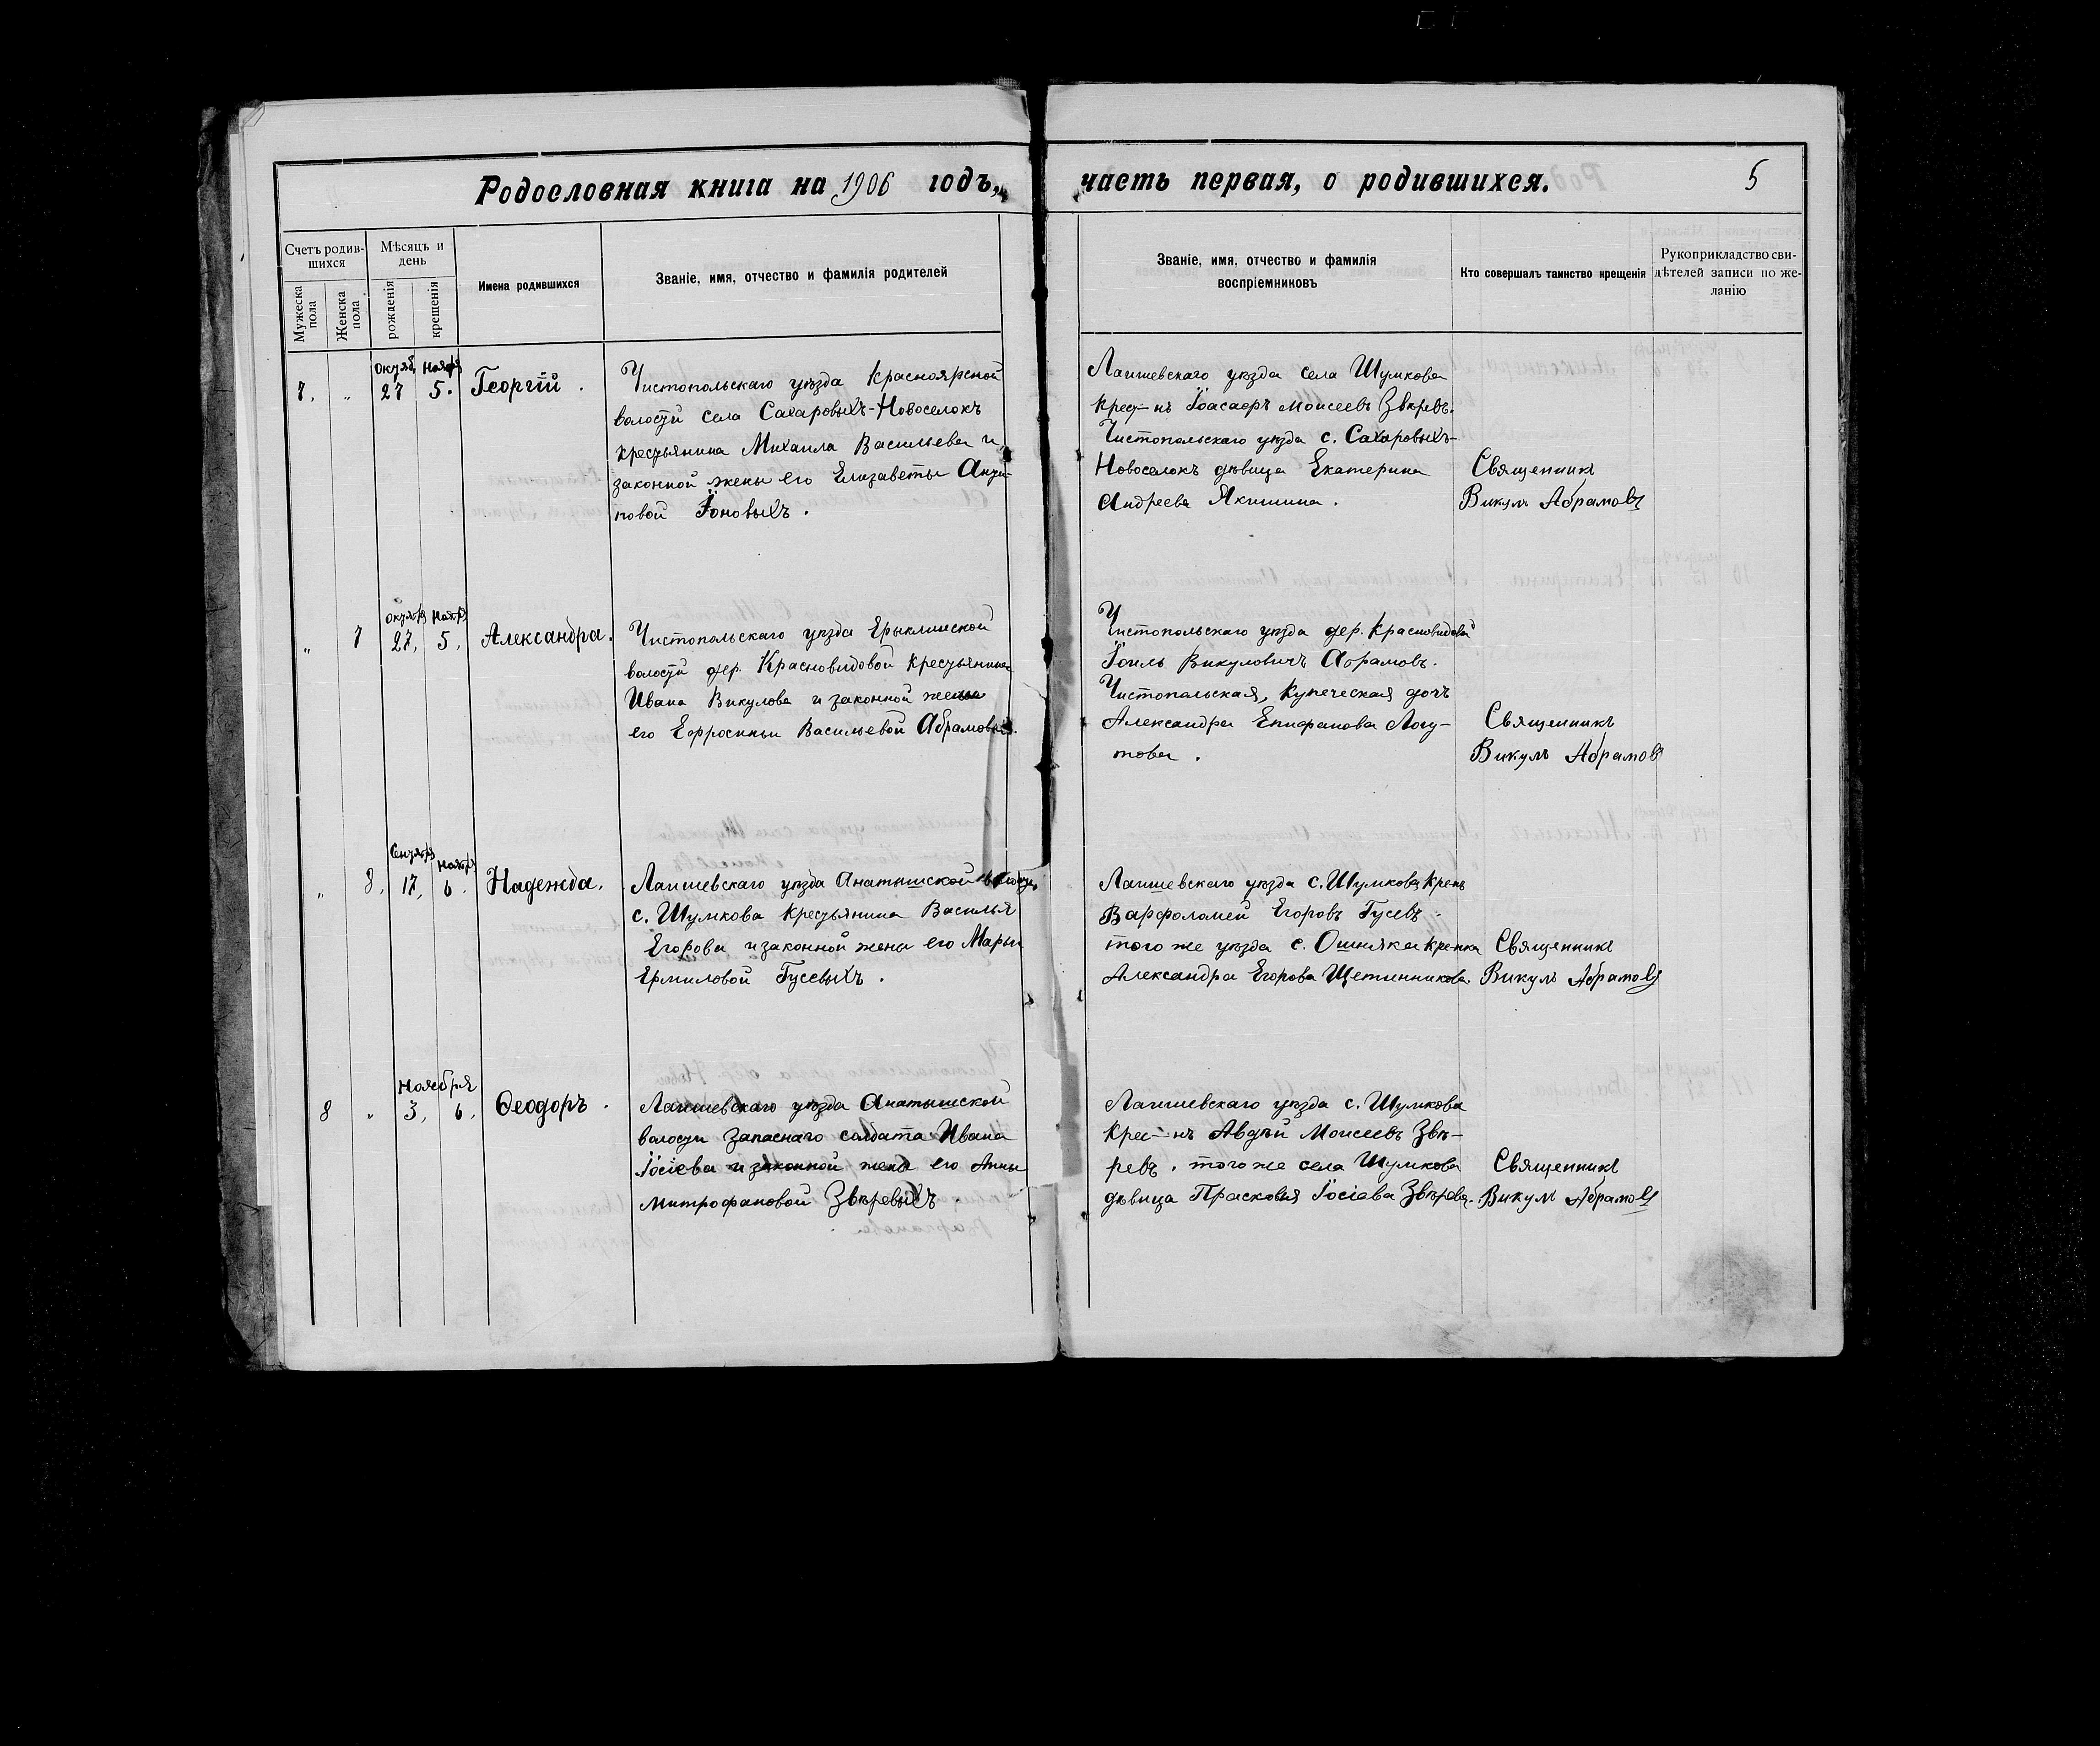 Родословная книга на 1906 годъ, часть первая, о родившихся. 5
Счетъ родив-
шихся
Мужеска
пола
Женска
пола
Мѣсяцъ и
день
рожденія
крещенія
Имена родившихся
Званіе, имя, отчество и фамилія родителей
Званіе, имя, отчество и фамилія
воспріемниковъ
Кто совершалъ таинство крещенія
Рукоприкладство сви-
дѣтелей записи по же-
ланію
7, „ 27 5. Георгій.
Чистопольскаго уѣзда Красноярской
волости села Сахаровыхъ-Новоселокъ
крестьянина Михаила Васильева и
законной жены его Елизаветы Анти-
повой Іоновыхъ.
Лаишевскаго уѣзда села Шумкова
Крест-нъ Іоасафъ Моисеевъ Звѣревъ.
Чистопольскаго уѣзда с. Сахаровыхъ-
Новоселокъ дѣвица Екатерина
Андреева Якишина.
Священникъ
Викулъ Абрамовъ
„ 7 27, 5, Александра.
Чистопольскаго уѣзда Ерыклинской
волости дер. Красновидовой крестьянина
Ивана Викулова и законной жены
его Ефросиньи Васильевой Абрамовыхъ.
Чистопольскаго уѣзда дер. Красновидовой
Іоиль Викуловичъ Абрамовъ.
Чистопольская, купеческая дочь
Александра Епифанова Логу-
това.
Священникъ
Викулъ Абрамовъ
„ 8, 17, 6. Надежда.
Лаишевскаго уѣзда Анатышской волости
с. Шумкова крестьянина Василья
Егорова и законной жены его Марьи
Ермиловой Гусевыхъ.
Лаишевскаго уѣзда с. Шумкова Кренъ
Варфоломей Егоровъ Гусевъ.
того же уѣзда с. Ошняка кренка
Александра Егорова Щетинникова.
Священникъ
Викулъ Абрамовъ
Ноября
8 „ 3, 6, Ѳеодоръ.
Лаишевскаго уѣзда Анатышской
волости запаснаго солдата Ивана
Іосіева и законной жены его Анны
Митрофановой Звѣревыхъ.
Лаишевскаго уѣзда с. Шумкова
Крес-нъ Авдѣй Моисеевъ Звѣ-
ревъ. того же села Шумкова
дѣвица Прасковья Іосіева Звѣрева.
Священникъ
Викулъ Абрамовъ